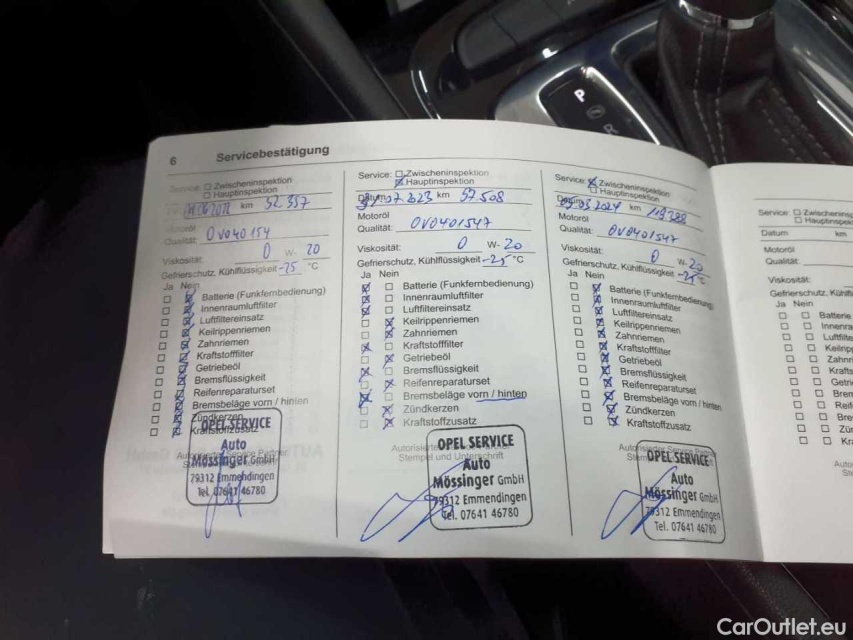 P
R
6 Servicebestätigung
Service: Zwischeninspektion
Hauptinspektion
km 52.357
Motoröl
Qualität: 0V0401 54
Viskosität: 0 W- 20
Gefrierschutz, Kühlflüssigkeit -25 °C
Ja Nein
Batterie (Funkfernbedienung)
Innenraumluftfilter
Luftfiltereinsatz
Keilrippenriemen
Zahnriemen
Kraftstofffilter
Getriebeöl
Bremsflüssigkeit
Reifenreparaturset
Bremsbeläge vorn / hinten
Zündkerzen
Kraftstoffzusatz
OPEL SERVICE
Auto
Mössinger GmbH
79312 Emmendingen
Tel. 07641 46780
Service: Zwischeninspektion
Hauptinspektion
Datum 31.07.2023 km
Motoröl
Qualität: 0V0401547
Viskosität: 0 W- 20
Gefrierschutz, Kühlflüssigkeit -25 °C
Ja Nein
Batterie (Funkfernbedienung)
Innenraumluftfilter
Luftfiltereinsatz
Keilrippenriemen
Zahnriemen
Kraftstofffilter
Getriebeöl
Bremsflüssigkeit
Reifenreparaturset
Bremsbeläge vorn / hinten
Zündkerzen
Kraftstoffzusatz
Stempel und Unterschrift
OPEL SERVICE
Auto
Mössinger GmbH
79312 Emmendingen
Tel. 07641 46780
Service: Zwischeninspektion
Hauptinspektion
Datum km
Motoröl
Qualität: 0V0401547
Viskosität: 0 W- 20
Gefrierschutz, Kühlflüssigkeit -25 °C
Ja Nein
Batterie (Funkfernbedienung)
Innenraumluftfilter
Luftfiltereinsatz
Keilrippenriemen
Zahnriemen
Kraftstofffilter
Getriebeöl
Bremsflüssigkeit
Reifenreparaturset
Bremsbeläge vorn / hinten
Zündkerzen
Kraftstoffzusatz
OPEL SERVICE
Auto
Mössinger GmbH
79312 Emmendingen
Tel. 07641 46780
Service: Zwischeninsp
Hauptinspek
Datum km
Motoröl
Qualität:
Viskosität:
Gefrierschutz, Kühlflüss
Ja Nein
Batterie
Innenra
Luftfilte
Keilripp
Zahnri
Krafts
Getri
Brem
Reif
Bre
Zür
Kra
CarOutlet.eu